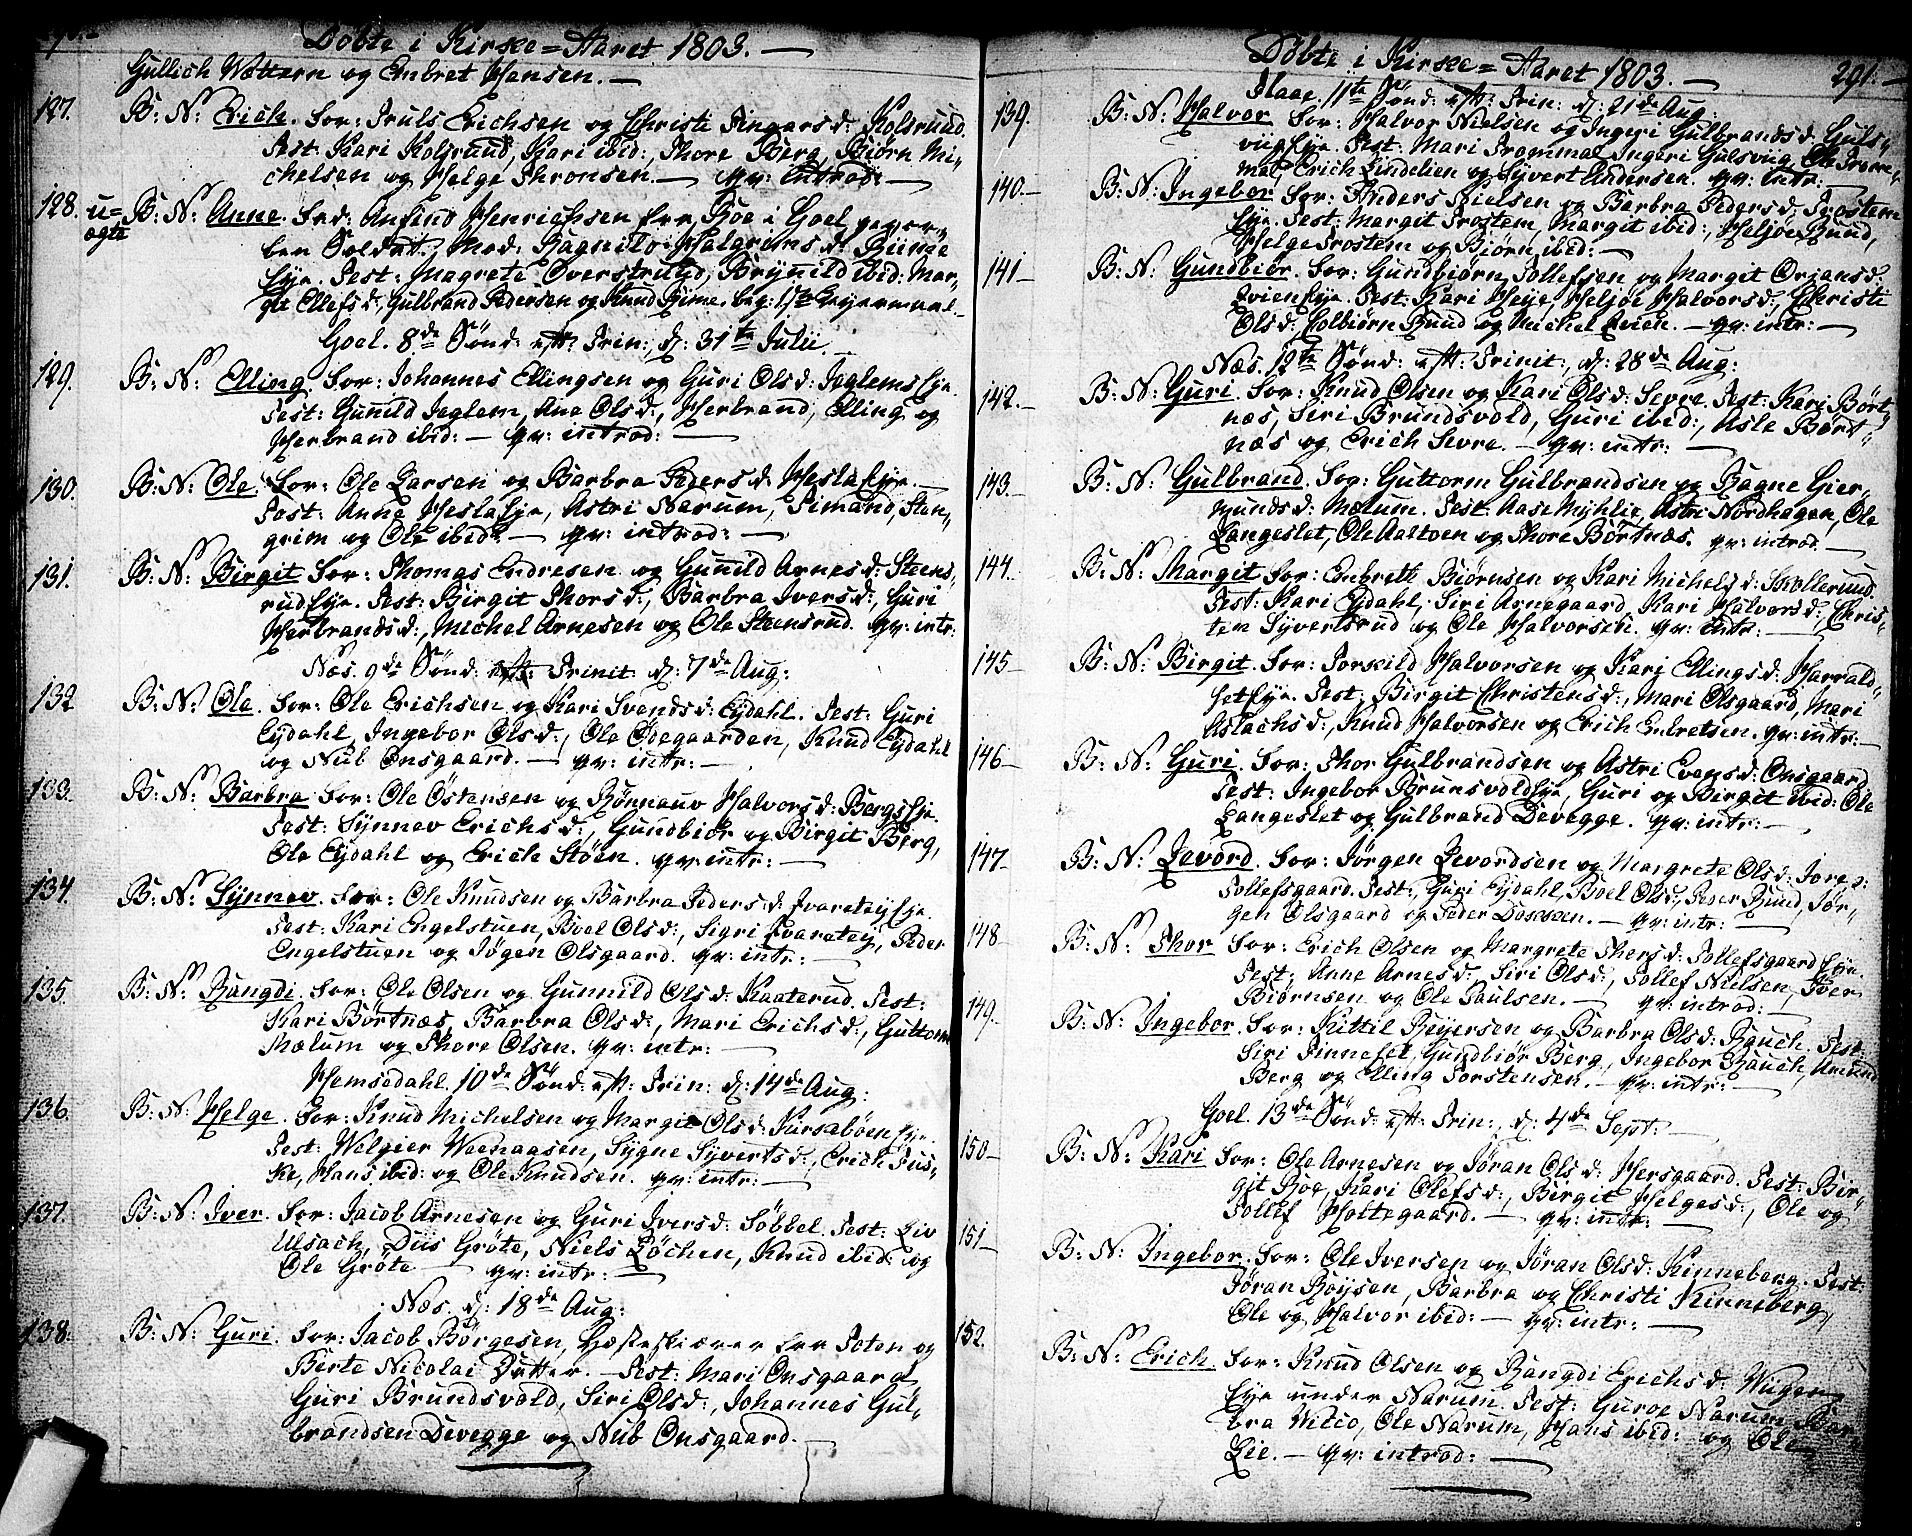 Döbte i Kirke=Aaret 1803. —
Gullich Wottern og Embret Hansen. —
127. B: N: Erich. For: Truls Erichsen og Christi Gingarsd: Kolsrud.
Test: Kari Kolsrud, Kari ibid:, Thore Berg, Biörn Mi-
chelsen og Helge Thronsen. — qv: introd: —
128. u= B: N: Anne. Fad: Anfind Henrichsen fra Roe i Goel,
ægte
ben Soldat, Mod: Ragnild Halgrimsd: Rime
Eje. Test: Magrete Overstrutyd, Brynild ibid: Mar-
git Ellefsd:, Gulbrand Pedersen og Knud Rime. beg: 1ste Leyermaal.
Goel. 8de Sönd: eft: Trin:, d: 31te Julii.
129. B: N: Elling. For: Johannes Ellingsen og Guri Olsd: Jeglems Eje.
Test: Gunild Jeglem, Ane Olsd:, Herbrand, Elling og
Herbrand ibid: — qv: introd: —
130. B: N: Ole. For: Ole Larsen og Barbra Pedersd: Hesla Eje. —
Test: Anne Hesla Eje, Astri Narum, Simand, Sten-
grim og Ole ibid: — qv: introd: —
131. B: N: Birgit For: Thomas Endresen og Gunild Arnesd: Steens-
rud Eje. Test: Birgit Thorsd:, Barbra Iversd:, Guri
Herbrandsd:, Michel Arnesen og Ole Steensrud. qv: intr:
Næs. 9de Sönd: eft: Trinit: d: 7de Aug:
132 B: N: Ole. For: Ole Erichsen og Kari Svendsd: Eydahl. Test: Guri
Eydahl, Ingebor Olsd:, Ole Ödegaarden, Knud Eydahl
og Nub Onsgaard. — qv: intr: —
133. B: N: Barbra For: Ole Östensen og Rönnauv Halvorsd: Bergs Eje.
Test: Synnev Erichsd:, Gundbiör og Birgit Berg,
Ole Eydahl og Erich Stöen. qv: intr: —
134. B: N: Synnev. For: Ole Knudsen og Barbra Pedersd: Tvaretej Eje.
Test: Kari Engelstuen, Boel Olsd:, Sigri Tvaretej, Peder
Engelstuen og Jögen Olsgaard. qv: intr: —
135. B: N: Rangdi. For: Ole Olsen og Gunnild Olsd: Kaaterud. Test:
Kari Börtnæs, Barbra Olsd:, Mari Erichsd:, Guttorm
Mælum og Thore Olsen. qv: intr: —
Hemsedahl. 10de Sönd: eft: Trin: d: 14de Aug:
136. B: N: Helge. For: Knud Michelsen og Margit Olsd: Tursabøen Eje.
Test: Welgier Weehaasen, Sygne Syvertsd:, Erich Tus-
ke, Hans ibid: og Ole Knudsen. qv: intr: —
137. B: N: Iver. For: Jacob Arnesen og Guri Iversd: Söbbel. Test: Liv
Ulsach, Düs Gröte, Niels Löchen, Knud ibid: og
Ole Gröte — qv: intr: —
Næs. d: 18de Aug:
138. B: N: Guri. For: Jacob Börgesen, Hesteskiærer fra Toten og
Berte Nicolai Dutter. — Test: Mari Onsgaard,
Guri Brundsvold, Siri Olsd:, Johannes Gul-
brandsen Devegge og Nub Onsgaard.
Döbte i Kirke=Aaret 1803. — 291. —
Flaae. 11te Sönd: eft: Trin: d: 21de Aug:
139. B: N: Halvor For: Halvor Nielsen og Ingeri Gulbrandsd: Guls-
viig Eje. Test: Mari Trommal, Ingeri Gulsvüg, Ole Trom-
mal, Erich Lindelien og Syvert Andersen. qv: intr: —
140. — B: N: Ingebor For: Anders Nielsen og Barbra Pedersd: Trostem
Eje. Test: Margit Trostem, Margit ibid:, Heljoe Rund,
Helge Trostem og Biörn ibid: —
141 — B: N: Gundbiör. For: Gundbiörn Tollefsen og Margit Örjansd:
Qvien Eje. Test: Kari Heje, Heljoe Halvorsd:, Christi
Olsd: Colbiörn Rund og Michel Qvien. — qv: intr: —
Næs. 12te Sönd: eft: Trinit:, d: 28de Aug:
142. — B: N: Guri. For: Knud Olsen og Kari Olsd: Sevre. Test: Kari Bört-
næs, Seri Brundsvold, Guri ibid:, Asle Bört-
næs og Erich Sevre. — qv: intr: —
143. — B: N: Gulbrand. For: Guttorm Gulbrandsen og Ragne Gier-
mundsd: Mælum. Test: Aase Myhlie, Astri Nordhagen, Ole
Langeslet, Ole Aaltoen og Thore Börtnæs. qv: introd. —
144. — B: N: Margit For: Embrett Biörnsen og Kari Michelsd: Smöllerud.
Test: Kari Eydahl, Siri Arnegaard, Kari Halvorsd:, Chris-
ten Syvertsrud og Ole Halvorsen. qv: intr: —
145 — B: N: Birgit. For: Torkild Halvorsen og Kari Ellingsd: Harrald-
set Eje. Test: Birgit Christensd:, Mari Olsgaard, Mari
Aslachsd:, Knud Halvorsen og Erich Embretsen. qv: intr: —
146 — B: N: Guri. For: Thor Gulbrandsen og Astri Evensd: Onsgaard
Test: Ingebor Brunsvold Eje, Guri og Birgit ibid: Ole
Langeslet og Gulbrand Devegge. qv: intr: —
147. — B: N: Levord. For: Jörgen Levordsen og Margrete Olsd:
Tollefsgaard. Test:, Guri Eydahl, Boel Olsd:, Peder Rund, Jör-
gen Olsgaard og Peder — qv: intr: —
148 — B: N: Thor For: Erich Olsen og Margrete Thersd: Tollefsgaard Eje.
Test: Anne Arnesd: Siri Olsd:, Tollef Nielsen, Iver
Biörnsen og Ole Paulsen. — qv: introd: —
149. — B: N: Ingebor. For: Kittil Reyersen og Barbra Olsd: Rauch. Test:
Siri Finneset, Gundbiör Berg, Ingebor Rauch, Amund
Berg og Elling Torstensen. — qv: intr: —
Goel. 13de Sönd: eft: Trin:, d: 4de Sept: —
150 — B: N: Kari For: Ole Arnesen og Jöran Olsd: Hersgaard. Test: Bir-
git Roe, Kari Olefsd:, Birgit Helgesd:, Ole og
Tollef Holtegaard. — qv: intr: —
151 — B: N: Ingebor. For: Ole Iversen og Jöran Olsd: Kinneberg. Test:
Jöran Röysen, Barbra og Christi Kinneberg,
Ole og Halvor ibid: — qv: intr: —
152. B: N: Erich. For: Knud Olsen og Rangdi Erichsd: Wügen
Eje under Narum. Test: Guroe Narum, Bar-
bra Wilco, Ole Narum, Hans ibid: og Ole
Lie. — qv: introd: —